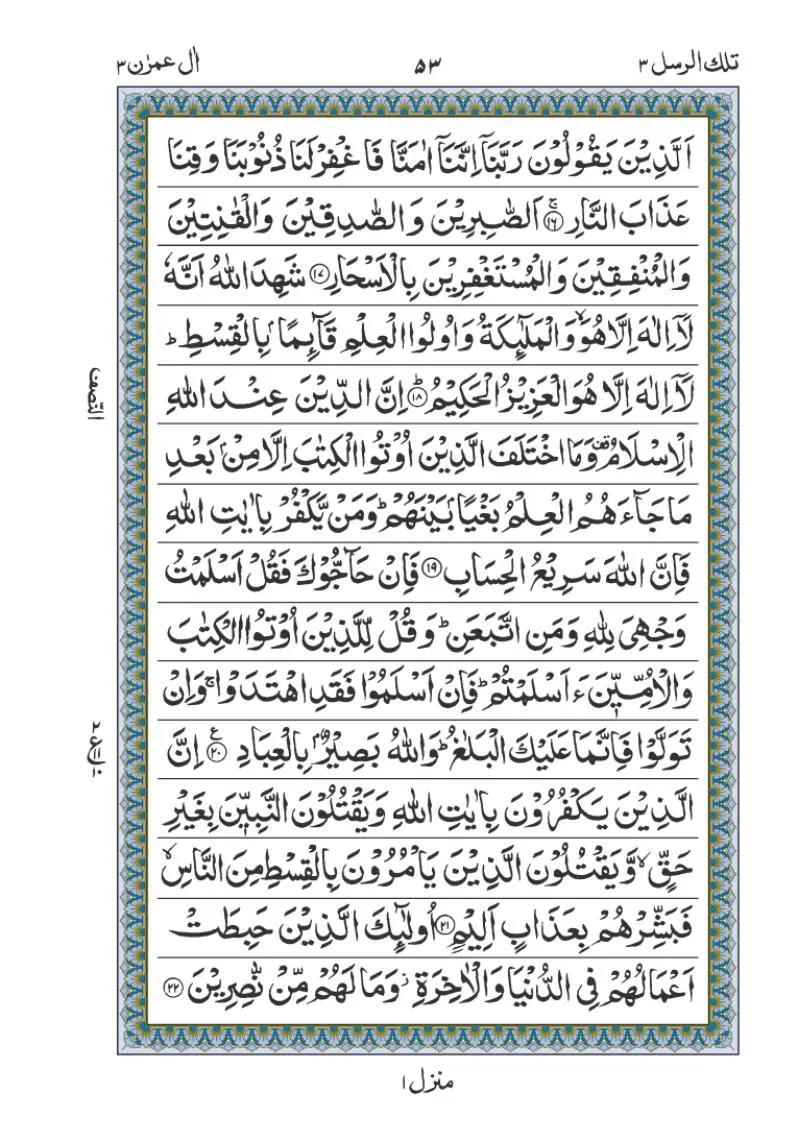 تلك الرسل ٣
٥٣
اٰل عمرٰن ٣
اَلَّذِيْنَ يَقُوْلُوْنَ رَبَّنَاۤ اِنَّنَاۤ اٰمَنَّا فَاغْفِرْ لَنَا ذُنُوْبَنَا وَقِنَا
عَذَابَ النَّارِ ۚ‏﴿۱۶﴾ اَلصّٰبِرِيْنَ وَالصّٰدِقِيْنَ وَالْقٰنِتِيْنَ
وَالْمُنْفِقِيْنَ وَالْمُسْتَغْفِرِيْنَ بِالْاَسْحَارِ ﴿۱۷﴾ شَهِدَ اللّٰهُ اَنَّهٗ
لَاۤ اِلٰهَ اِلَّا هُوَ ۙ وَالْمَلٰٓئِكَةُ وَاُولُوا الْعِلْمِ قَآئِمًۢا بِالْقِسْطِ ؕ
لَاۤ اِلٰهَ اِلَّا هُوَ الْعَزِيْزُ الْحَكِيْمُ ؕ﴿۱۸﴾ اِنَّ الدِّيْنَ عِنْدَ اللّٰهِ
النّصف
الْاِسْلَامُ ۟ وَمَا اخْتَلَفَ الَّذِيْنَ اُوْتُوا الْكِتٰبَ اِلَّا مِنْۢ بَعْدِ
مَا جَآءَهُمُ الْعِلْمُ بَغْيًاۢ بَيْنَهُمْ ؕ وَمَنْ يَّكْفُرْ بِاٰيٰتِ اللّٰهِ
فَاِنَّ اللّٰهَ سَرِيْعُ الْحِسَابِ ﴿۱۹﴾ فَاِنْ حَآجُّوْكَ فَقُلْ اَسْلَمْتُ
وَجْهِيَ لِلّٰهِ وَمَنِ اتَّبَعَنِ ؕ وَقُلْ لِّلَّذِيْنَ اُوْتُوا الْكِتٰبَ
وَالْاُمِّيّٖنَ ءَاَسْلَمْتُمْ ؕ فَاِنْ اَسْلَمُوْا فَقَدِ اهْتَدَوْا ۚ وَاِنْ
تَوَلَّوْا فَاِنَّمَا عَلَيْكَ الْبَلٰغُ ؕ وَاللّٰهُ بَصِيْرٌۢ بِالْعِبَادِ ﴿۲۰﴾ اِنَّ
الَّذِيْنَ يَكْفُرُوْنَ بِاٰيٰتِ اللّٰهِ وَيَقْتُلُوْنَ النَّبِيّٖنَ بِغَيْرِ
حَقٍّ ۙ وَّيَقْتُلُوْنَ الَّذِيْنَ يَاْمُرُوْنَ بِالْقِسْطِ مِنَ النَّاسِ ۙ
فَبَشِّرْهُمْ بِعَذَابٍ اَلِيْمٍ ﴿۲۱﴾ اُولٰٓئِكَ الَّذِيْنَ حَبِطَتْ
اَعْمَالُهُمْ فِى الدُّنْيَا وَالْاٰخِرَةِ ۫ وَمَا لَهُمْ مِّنْ نّٰصِرِيْنَ ﴿۲۲﴾
منزل ١